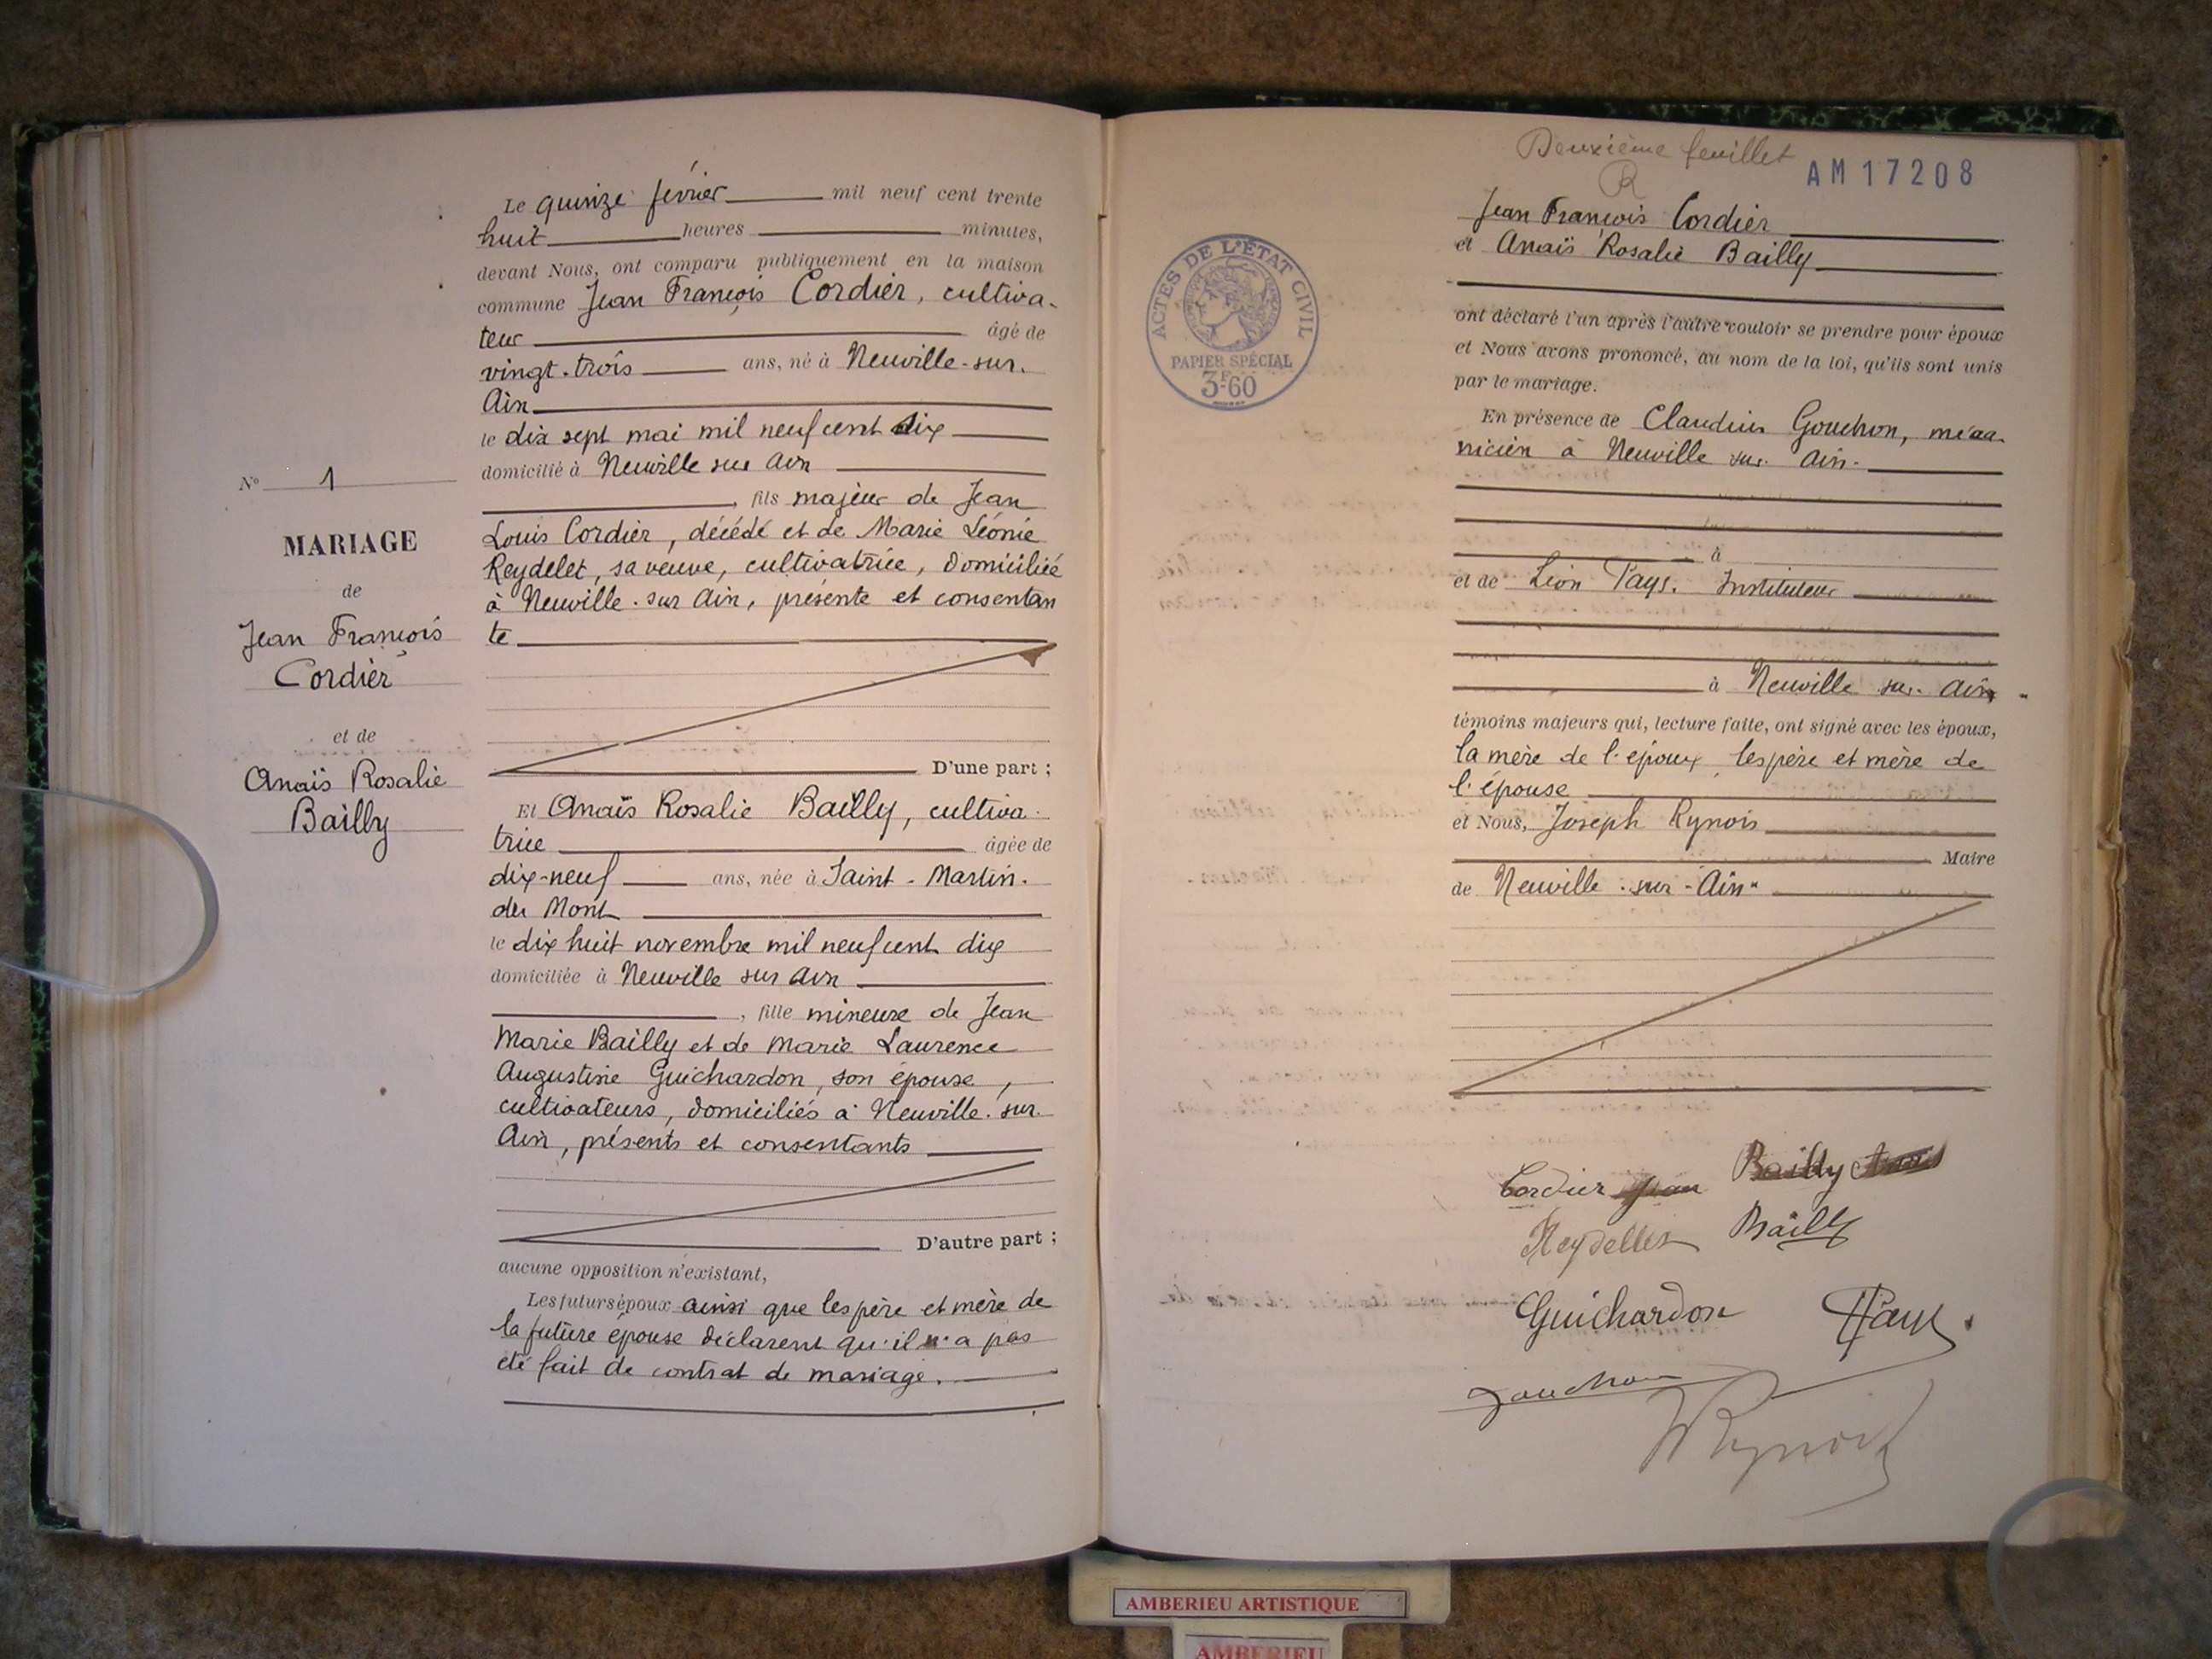 Le quinze février mil neuf cent trente
huit heures minutes,
devant Nous, ont comparu publiquement en la maison
commune Jean François Cordier, cultiva-
teur âgé de
vingt-trois ans, né à Neuville-sur-
Ain
le dix sept mai mil neuf cent dix
domicilié à Neuville sur Ain
, fils majeur de Jean
Louis Cordier, décédé et de Marie Léonie
Reydelet, sa veuve, cultivatrice, domiciliée
à Neuville-sur Ain, présente et consentan
te
D'une part ;
N° 1
MARIAGE
de
Jean François
Cordier
et de
Anaïs Rosalie
Bailly
Et Anaïs Rosalie Bailly, cultiva-
trice âgée de
dix-neuf ans, née à Saint-Martin-
du Mont
le dix huit novembre mil neuf cent dix
domiciliée à Neuville sur Ain
, fille mineure de Jean
Marie Bailly et de Marie Laurence
Augustine Guichardon, son épouse,
cultivateurs, domiciliés à Neuville-sur-
Ain, présents et consentants
D'autre part ;
aucune opposition n'existant,
Les futurs époux ainsi que les père et mère de
la future épouse déclarent qu'il n'a pas
été fait de contrat de mariage.
Deuxième feuillet
R
AM 17208
ACTES DE L'ÉTAT CIVIL
PAPIER SPÉCIAL
3F-60
Jean François Cordier
et Anaïs Rosalie Bailly
ont déclaré l'un après l'autre vouloir se prendre pour époux
et Nous avons prononcé, au nom de la loi, qu'ils sont unis
par le mariage.
En présence de Claudius Gouchon, méca-
nicien à Neuville sur Ain-
à
et de Léon Pays. Instituteur
à Neuville sur Ain
témoins majeurs qui, lecture faite, ont signé avec les époux,
la mère de l'époux, les père et mère de
l'épouse
et Nous, Joseph Rynois
Maire
de Neuville-sur-Ain
Cordier Jean
Bailly
Reydellet
Bailly
Guichardon
Pays
Gouchon
Rynois
AMBERIEU ARTISTIQUE
AMBERIEU